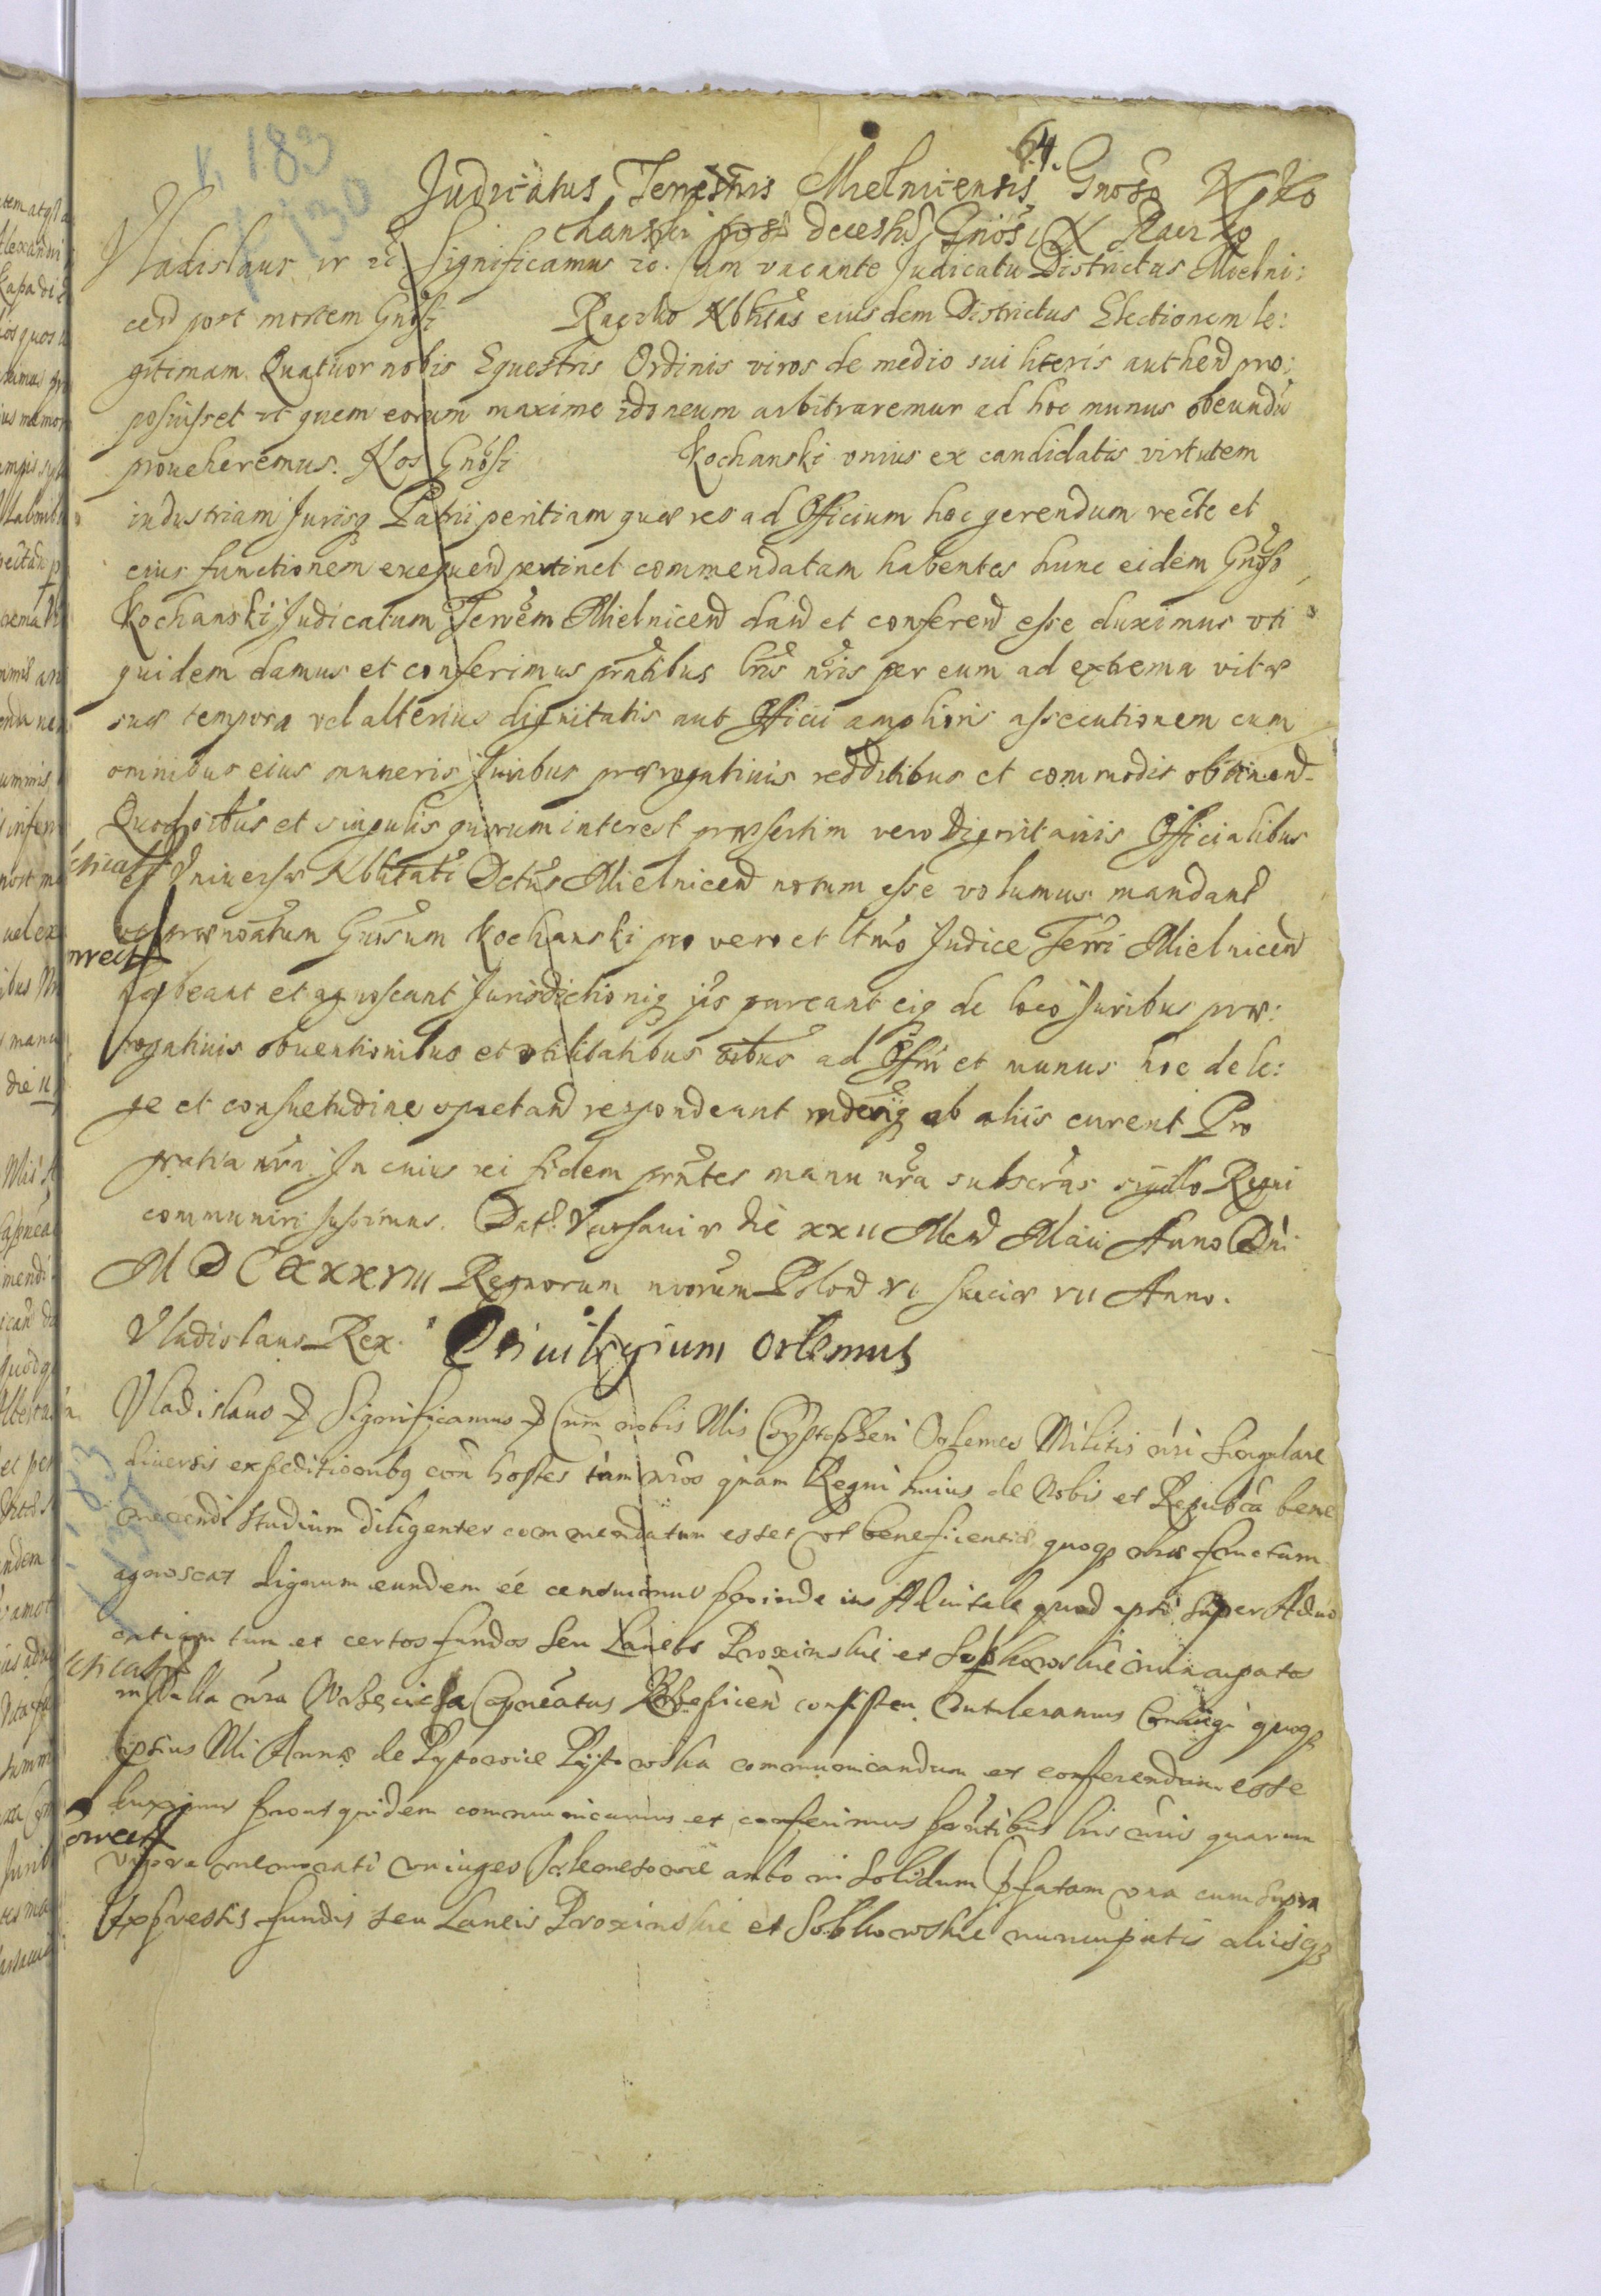 64.
K 183
130
Judicatus Terrestris Mielnicensis Gnoso N Ko
chanski post decessu Gnosi N Raczko
Vladislaus IV etc. Significamus etc. Cum vacante Judicatu Districtus Mielni:
cen post mortem Gnosi Raczko Nblitas eiusdem Districtus Electionem le:
gitimam Quatuor nobis Equestris Ordinis viros de medio sui literis authen pro:
posuisset ut quem eorum maxime idoneum arbitraremur ad hoc munus obeundu
proueheremus. Nos Gnosi Kochanski vnius ex candidatis virtutem
industriam Jurisq Patrii peritiam quae res ad Officium hoc gerendum recte et
eius functionem exequen pertinet commendatam habentes hunc eidem Gnoso
Kochanski Judicatum Terrem Mielnicen dan et conferen esse duximus vti
quidem damus et conferimus prntibus lris nris per eum ad extrema vitae
suae tempora vel alterius dignitatis aut Officii amplioris assecutionem cum
omnibus eius muneris Juribus praerogatiuis redditibus et commodis obtinend.
Quod oibus et singulis quorum interest praesertim vero Dignitariis Officialibus
et Vniuersae Nblitati Dctus Mielnicen notum esse volumus mandant
vt praenoatum Gnosum Kochanski pro vero et ltmo Judice Terri Mielnicen
habeant et agnoscant Jurisdictioniq eius pareant eiq de loco Juribus prae:
rogatiuis obuentionibus et vtilitatibus oibus ad Offm et munus hoc de le:
ge et consuetudine spectan respondeant rnderiq ab aliis curent Pro
gratia nra. In cuius rei fidem prntes manu nra subscras sigillo Regni
communiri jussimus. Dat. Varsauiae die XXII Men Maii Anno Dni
MDCXXXVIII Regnorum nrorum Polon VI Sueciae VII Anno.
Vladislaus Rex. Priuilegium Orlemus
Vladislaus Significamus Cum nobis Mis Chrystopheri Orlemes Militis nri singulare
diuersis expeditionibq con hostes tam nros quam Regni huius de Nobis et Repubca bene
merendi studium diligenter commendatum esset vt beneficentiae quoq nrae fructum
agnoscat dignum eundem ee censuimus perinde ius Aduitale quod ipsi super Aduo
catiam tum et certos fundos seu Laneos Proxinskie et Sobkowskie nuncupatos
in Villa nra consisten Contuleramus Coniugi quoq
ipsius Mi Annae de Pystowice Pystowska communicandum et conferendum esse
duximus prout quidem communicamus et conferimus prntibus lris nris quarum
vigore memorati coniuges ambo in solidum pfatam vna cum supra
Expressis fundis seu Laneis Proxinskie et Sobkowskie nuncupatis aliisq